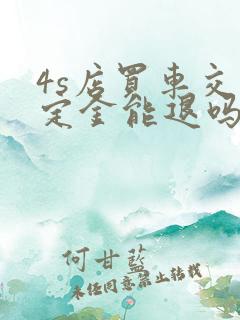 4s店買車交
定金能退吗
何甘藍
未经同意禁止转载